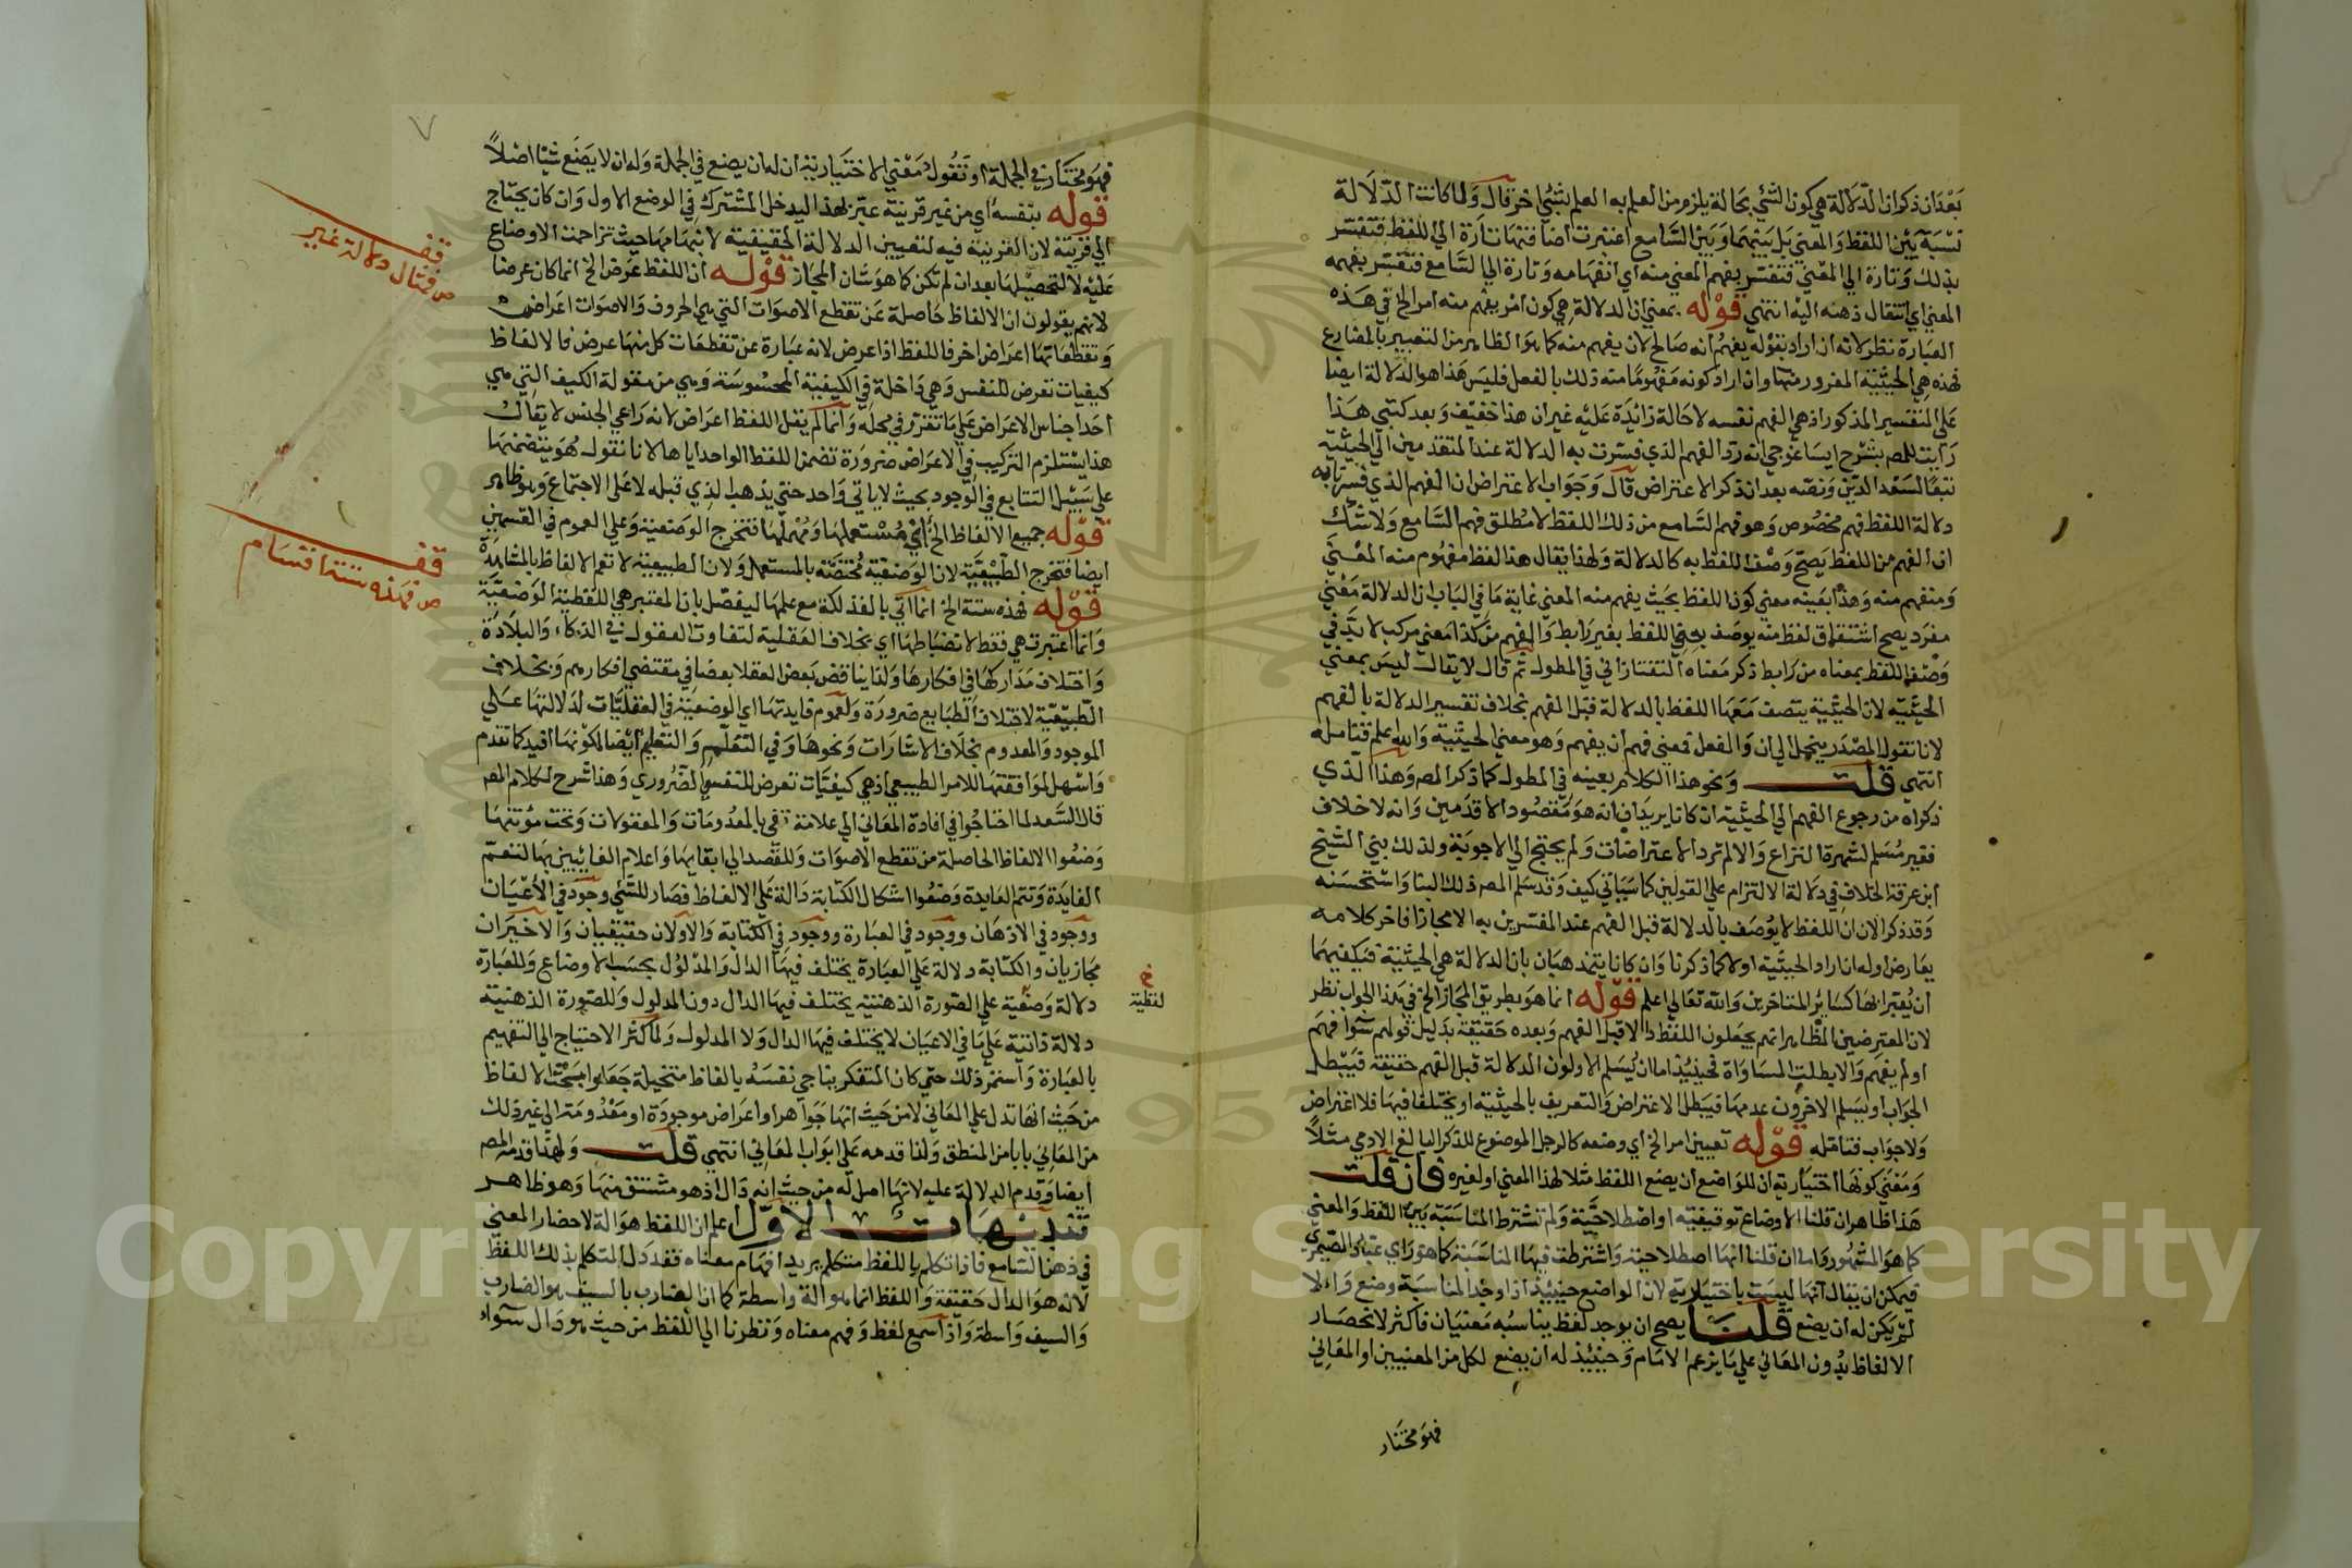 بعد ان ذكر ان الدلالة هي كون الشيء بحالة يلزم من العلم به العلم بشيء اخر قال ولما كانت الدلالة
نسبة بين اللفظ والمعني بل بينهما وبين السامع اعتبرت اضافتها تارة الي اللفظ فتفسر
بذلك وتارة الي المعني فتفسر بفهم المعني منه اي انفهامه وتارة الي السامع فتفسر بفهمه
المعني اي انتقال ذهنه اليه انتهي قوله بمعني ان الدلالة هي كون امر يفهم منه امر الخ في هذه
العبارة نظر لانه ان اراد بقوله يفهم انه صالح لان يفهم منه كما هو الظاهر من التعبير بالمضارع
فهذه هي الحيثية المفرور منها وان اراد كونه مفهوما منه ذلك بالفعل فليس هذا هو الدلالة ايضا
علي التفسير المذكور اذ هي الفهم نفسه لا حالة زائدة عليه غير ان هذا خفيف وبعد كتبي هذا
رايت للمص بشرح ايساغوجي انه رد الفهم الذي فسرت به الدلالة عند المتقدمين الي الحيثية
تبعا لسعد الدين ونصه بعد ان ذكر الاعتراض قال وجواب الاعتراض ان الفهم الذي فسرنا به
دلالة اللفظ فهم مخصوص وهو فهم السامع من ذلك اللفظ لا مطلق فهم السامع ولا شك
ان الفهم من اللفظ يصح وصف اللفظ به كالدلالة ولهذا يقال هذا لفظ مفهوم منه المعني
ومنفهم منه وهذا بعينه معني كون اللفظ بحيث يفهم منه المعني غاية ما في الباب ان الدلالة معني
مفرد يصح اشتقاق لفظ منه يوصف به اللفظ بغير رابط والفهم من كذا معني مركب لا بد في
وصف اللفظ بمعناه من رابط ذكر معناه التفتازاني في المطول ثم قال لا يقال ليس بمعني
الحيثية لان الحيثية يتصف معها اللفظ بالدلالة قبل الفهم بخلاف تفسير الدلالة بالفهم
لانا نقول المصدر ينحل الي ان والفعل فمعني فهم ان يفهم وهو معني الحيثية والله اعلم فتامله
انتهي قلت ونحو هذا الكلام بعينه في المطول كما ذكر المص وهذا الذي
ذكراه من رجوع الفهم الي الحيثية ان كانا يريدان انه هو مقصود الاقدمين وانه لا خلاف
فغير مسلم لشهرة النزاع والا لم ترد الاعتراضات ولم يحتج الي الاجوبة ولذلك بني الشيخ
ابن عرفة الخلاف في دلالة الالتزام علي القولين كما سياتي كيف وقد سلم المص ذلك البنا واستحسنه
وقد ذكر الان ان اللفظ لا يوصف بالدلالة قبل الفهم عند المفسرين به الا مجازا فاخر كلامه
يعارض اوله ان اراد الحيثية اولا كما ذكرنا وان كانا يتمذهبان بان الدلالة هي الحيثية فيكفيهما
ان يعبرا بها كسائر المتاخرين والله تعالي اعلم قوله انما هو بطريق المجاز الخ في هذا الجواب نظر
لان المعترضين الظاهر انهم يجعلون اللفظ دالا قبل الفهم وبعده حقيقة بدليل قولهم سوا فهم
او لم يفهم والا بطلت المساواة فحينئذ اما ان يسلم الاولون الدلالة قبل الفهم حقيقة فيبطل
الجواب او يسلم الاخرون عدمها فيبطل الاعتراض والتعريف بالحيثية او يختلفا فيها فلا اعتراض
ولا جواب فتامله قوله تعيين امر الخ اي وضعه كالرجل الموضوع للذكر البالغ الادمي مثلا
ومعني كونها اختيارية ان للواضع ان يضع اللفظ مثلا لهذا المعني او لغيره فان قلت
هذا ظاهر ان قلنا الاوضاع توقيفية او اصطلاحية ولم تشترط المناسبة بين اللفظ والمعني
كما هو المشهور واما ان قلنا انها اصطلاحية واشترطت فيها المناسبة كما هو راي عباد الصيمري
فيمكن ان يقال انها ليست باختيارية لان الواضع حينئذ اذا وجد المناسبة وضع والا
لم يكن له ان يضع قلنا يصح ان يوجد لفظ يناسبه معنيان فاكثر لانحصار
الالفاظ بدون المعاني علي ما يزعم الامام وحينئذ له ان يضع لكل من المعنيين او المعاني
فهو مختار
فهو مختار في الجملة او تقول معني الاختيارية ان له ان يضع في الجملة وله ان لا يضع شيا اصلا
قوله بنفسه اي من غير قرينة عبر بهذا ليدخل المشترك في الوضع الاول وان كان يحتاج
الي قرينة لان القرينة فيه لتعيين الدلالة الحقيقية لانبهامها حيث تزاحمت الاوضاع
عليه لا لتحصيلها بعد ان لم تكن كما هو شان المجاز قوله ان اللفظ عرض الخ انما كان عرضا
لانهم يقولون ان الالفاظ حاصلة عن تقطع الاصوات التي هي الحروف والاصوات اعراض
وتقطعاتها اعراض اخر فاللفظ اذا عرض لانه عبارة عن تقطعات كل منها عرض فالالفاظ
كيفيات تعرض للنفس وهي داخلة في الكيفية المحسوسة وهي من مقولة الكيف التي هي
احد اجناس الاعراض علي ما تقرر في محله وانما لم يقل اللفظ اعراض لانه راعي الجنس لا يقال
هذا يستلزم التركيب في الاعراض ضرورة تضمن اللفظ الواحد اياها لانا نقول هو يتضمنها
علي سبيل التتابع في الوجود بحيث لا ياتي واحد حتي يذهب الذي قبله لا علي الاجتماع وهو ظاهر
قوله جميع الالفاظ الخ اي مستعملها ومهملها فتخرج الوضعية وعلي العموم في القسمين
ايضا فتخرج الطبيعية لان الوضعية مختصة بالمستعمل ولان الطبيعية لا تعم الالفاظ بالمشاهدة
قوله فهذه ستة الخ انما اتي بالفذلكة مع علمها ليفصل بان المعتبر هي اللفظية الوضعية
وانما اعتبرت هي فقط لانضباطها اي بخلاف العقلية لتفاوت العقول في الذكاء والبلادة
واختلاف مداركها في افكارها ولذا يناقض بعض العقلا بعضا في مقتضي افكارهم وبخلاف
الطبيعية لاختلاف الطبايع ضرورة ولعموم فايدتها اي الوضعية في العقليات لدلالتها علي
الموجود والمعدوم بخلاف الاشارات ونحوها وفي التعلم والتعليم ايضا لكونها افيد كما تقدم
واسهل لموافقتها للامر الطبيعي اذ هي كيفيات تعرض للنفس الضروري وهذا شرح لكلام المص
قال السعد لما احتاجوا في افادة المعاني الي علامة تفي بالمعدومات والمعقولات وتخف مؤنتها
وضعوا الالفاظ الحاصلة من تقطع الاصوات وللقصد الي ابقايها واعلام الغائبين بها لتعم
الفايدة وتتم العايدة وضعوا اشكال الكتابة دالة علي الالفاظ فصار للشي وجود في الاعيان
ووجود في الاذهان ووجود في العبارة ووجود في الكتابة والاولان حقيقيان والاخيران
مجازيان والكتابة دلالة علي العبارة يختلف فيها الدال والمدلول بحسب الاوضاع وللعبارة
دلالة وضعية علي الصورة الذهنية يختلف فيها الدال دون المدلول وللصورة الذهنية
دلالة ذاتية علي ما في الاعيان لا يختلف فيها الدال ولا المدلول ولما كثر الاحتياج الي التفهيم
بالعبارة واستمر ذلك حتي كان المتفكر يناجي نفسه بالفاظ متخيلة جعلوا بحث الالفاظ
من حيث انها تدل علي المعاني لا من حيث انها جواهر او اعراض موجودة او معدومة الي غير ذلك
من المعاني بابا من المنطق ولذا قدمه علي ابواب المعاني انتهي قلت ولهذا قدمه المص
ايضا وقدم الدلالة عليه لانها اصل له من حيث انه دال اذ هو مشتق منها وهو ظاهر
تنبيهات الاول اعلم ان اللفظ هو الة لاحضار المعني
في ذهن السامع فاذا تكلم باللفظ متكلم يريد افهام معناه فقد دل المتكلم بذلك اللفظ
لانه هو الدال حقيقة واللفظ انما هو الة واسطة كما ان الضارب بالسيف هو الضارب
والسيف واسطة واذا سمع لفظ وفهم معناه ونظرنا الي اللفظ من حيث هو دال سواء
قف
ص فمثال دلالة غير
قف
ص فهذه ستة اقسام
لفظية
٧
Copyright © King Saud University